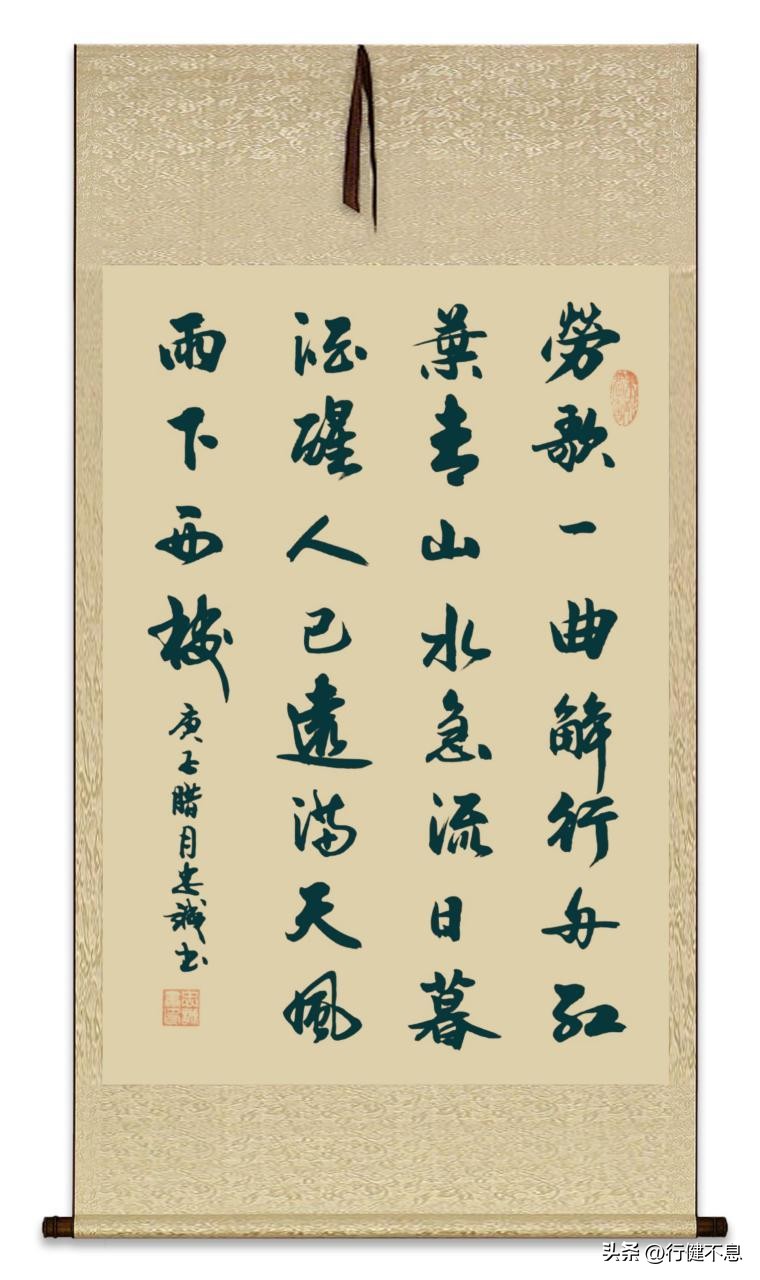 勞歌一曲解行舟红
葉青山水急流日暮
酒醒人已遠满天風
雨下西樓
庚子腊月忠誠书
头条 @行健不息